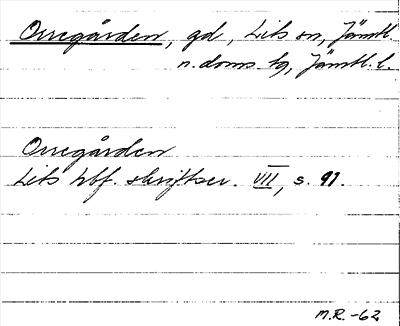 Orregården, gd, Lits sn, Jämtl.
n. doms. hg, Jämtl. l.
Orregården
Lits hbf. skrifter. VII, s. 91.
M.R. -62